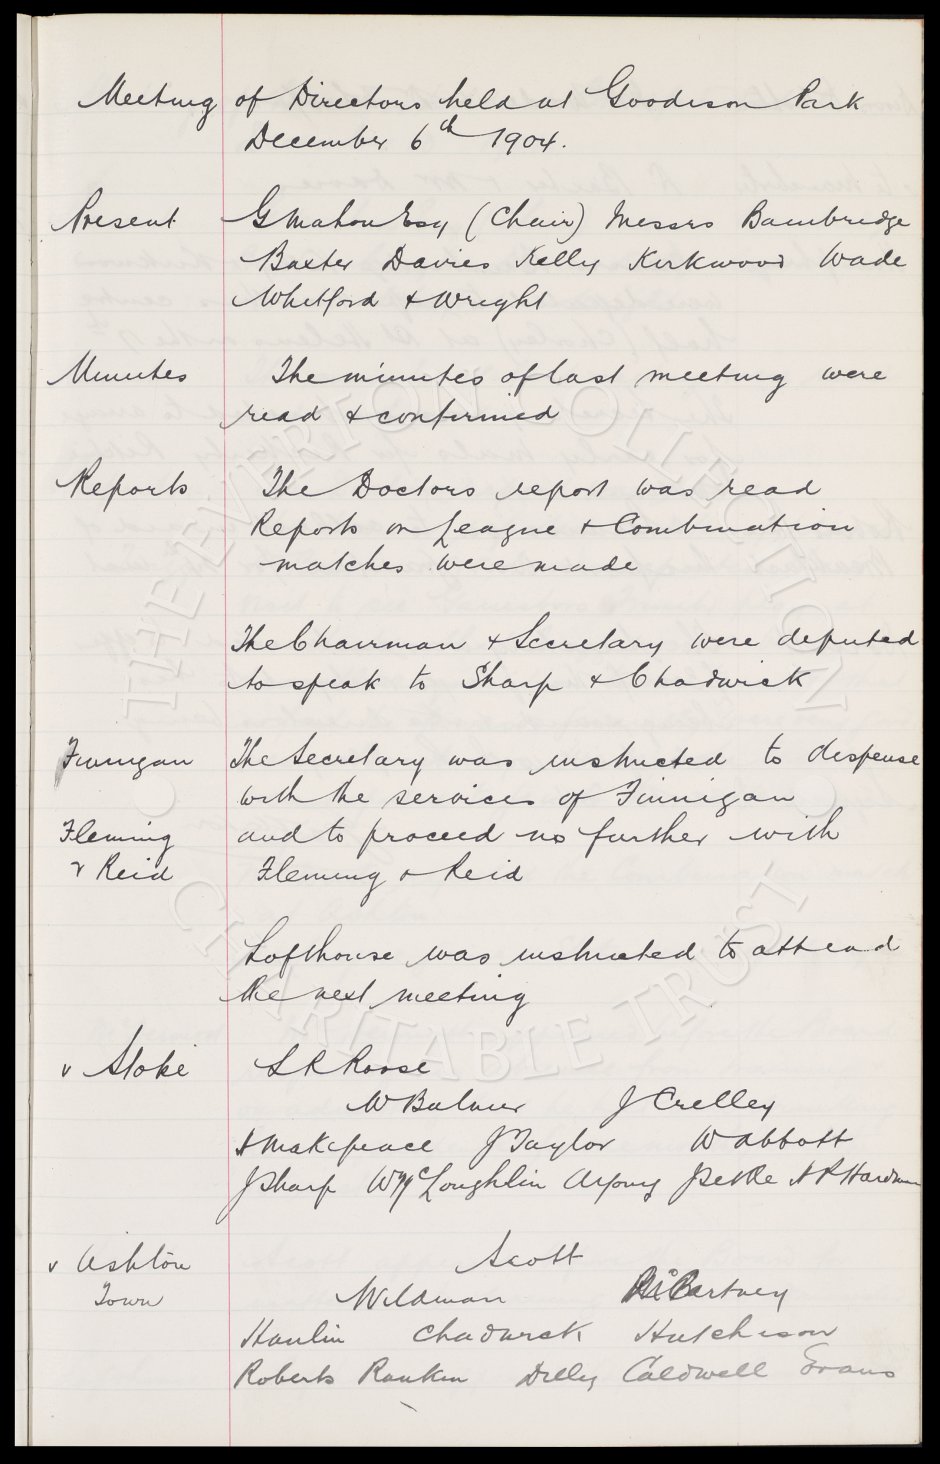 Meeting of Directors held at Goodison Park
December 6th 1904.
Present G Mahon Esq (Chair) Messrs Bainbridge
Baxter Davies Kelly Kirkwood Wade
Whitford & Wright
Minutes The minutes of last meeting were
read & confirmed
Reports The Doctors report was read
Reports on League & Combination
matches were made
The Chairman & Secretary were deputed
to speak to Sharp & Chadwick
Finnigan The Secretary was instructed to dispense
with the services of Finnigan
Fleming and to proceed no further with
& Reid Fleming & Reid
Lofthouse was instructed to attend
the next meeting
v Stoke L R Roose
W Balmer J Crelley
H Makepeace J Taylor W Abbott
J Sharp W McLoughlin A Young J Settle H P Hardman
v Ashton Scott
Town Wildman McCartney
Hanlin Chadwick Hutchison
Roberts Rankin Dilly Caldwell Evans
THE EVERTON COLLECTION
CHARITABLE TRUST